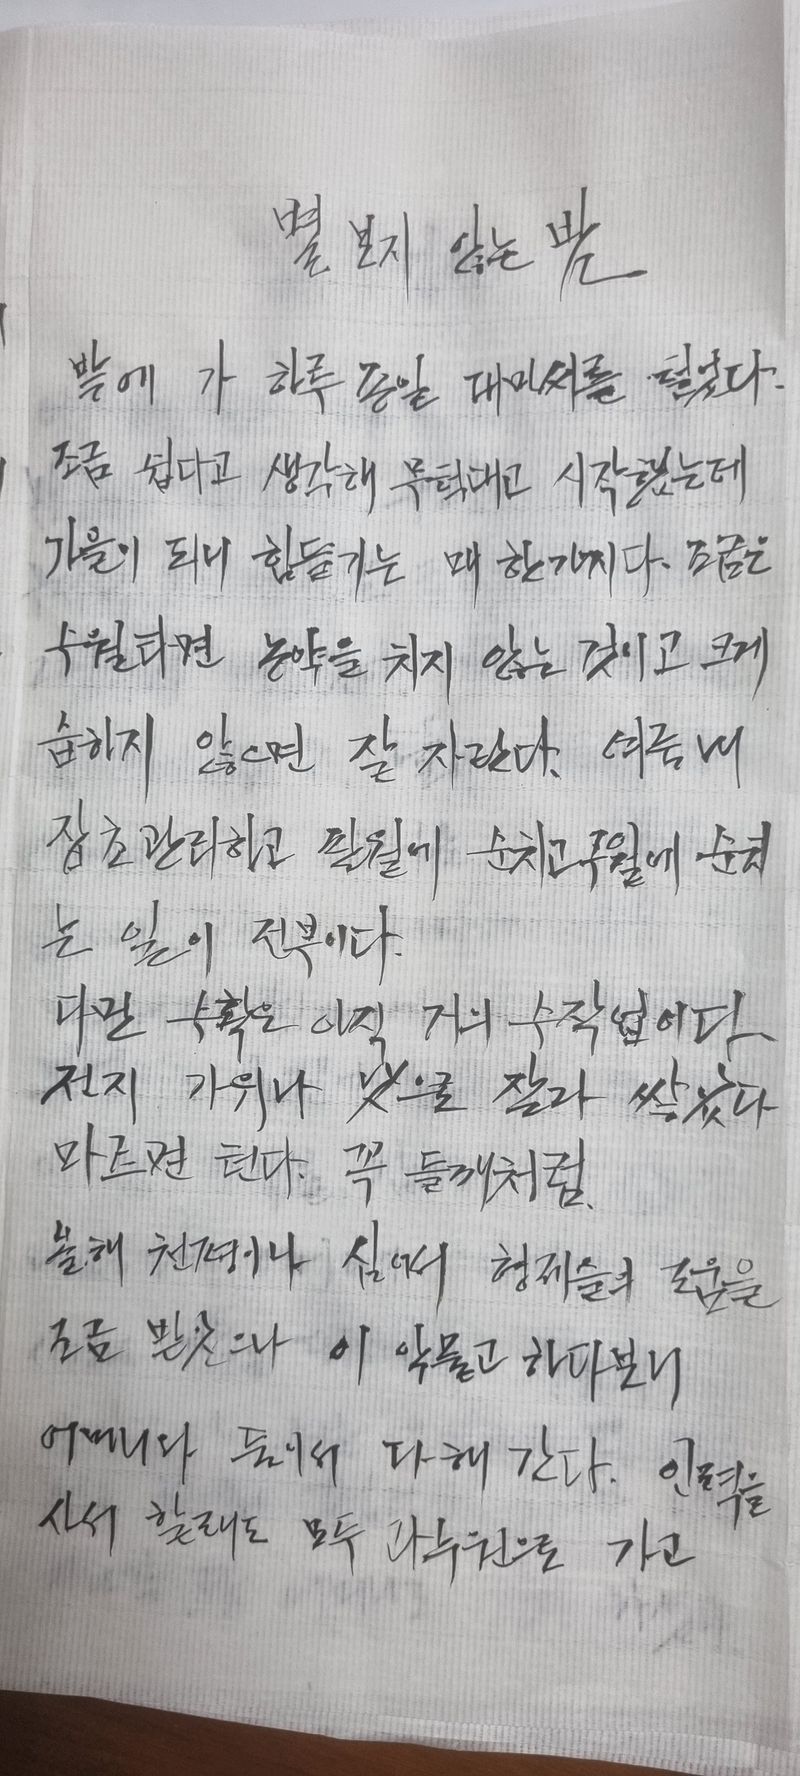 별 보지 않는 밤
밭에 가 하루 종일 대마씨를 털었다.
조금 쉽다고 생각해 무턱대고 시작했는데
가을이 되니 힘들기는 매 한가지다. 조금은
수월타면 농약을 치지 않는 것이고 크게
습하지 않으면 잘 자란다. 여름 내
잡초관리하고 팔월에 순치고 구월에 순치
는 일이 전부이다.
다만 수확은 아직 거의 수작업이다.
전지 가위나 낫으로 잘라 쌓았다
마르면 턴다. 꼭 들깨처럼.
올해 천평이나 심어서 형제들의 도움을
조금 받았으나 이 악물고 하다보니
어머니와 둘이서 다 해 간다. 인력을
사서 할래도 모두 과수원으로 가고